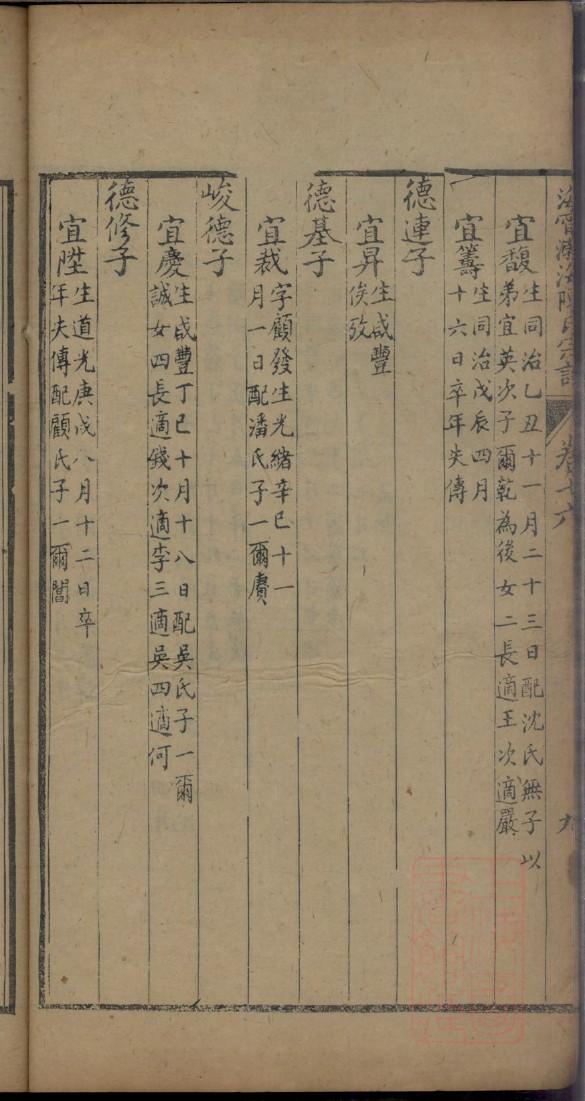 宜馥生同治乙丑十一月二十三日配沈氏無子以
弟宜英次子爾乾為後女二長適王次適嚴
宜籌生同治戊辰四月
十六日卒年失傳
德連子
宜昇生咸豐
俟攷
德基子
宜裁字顧發生光緒辛巳十一
月一日配潘氏子一爾賡
峻德子
宜慶生咸豐丁巳十月十八日配吳氏子一爾
誠女四長適錢次適李三適吳四適何
德修子
宜陞生道光庚戌八月十二日卒
年失傳配顧氏子一爾閶
卷十六
九